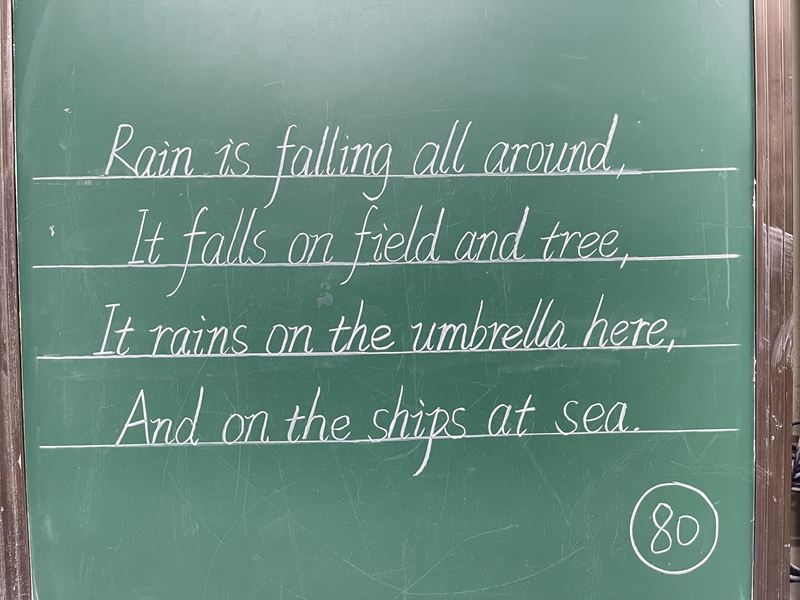 Rain is falling all around,
It falls on field and tree,
It rains on the umbrella here,
And on the ships at sea.
80